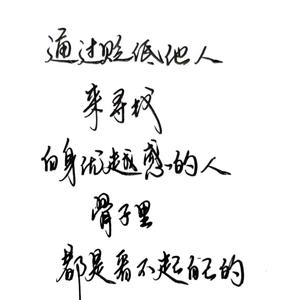 通过贬低他人
来寻找
自身优越感的人
骨子里
都是看不起自己的